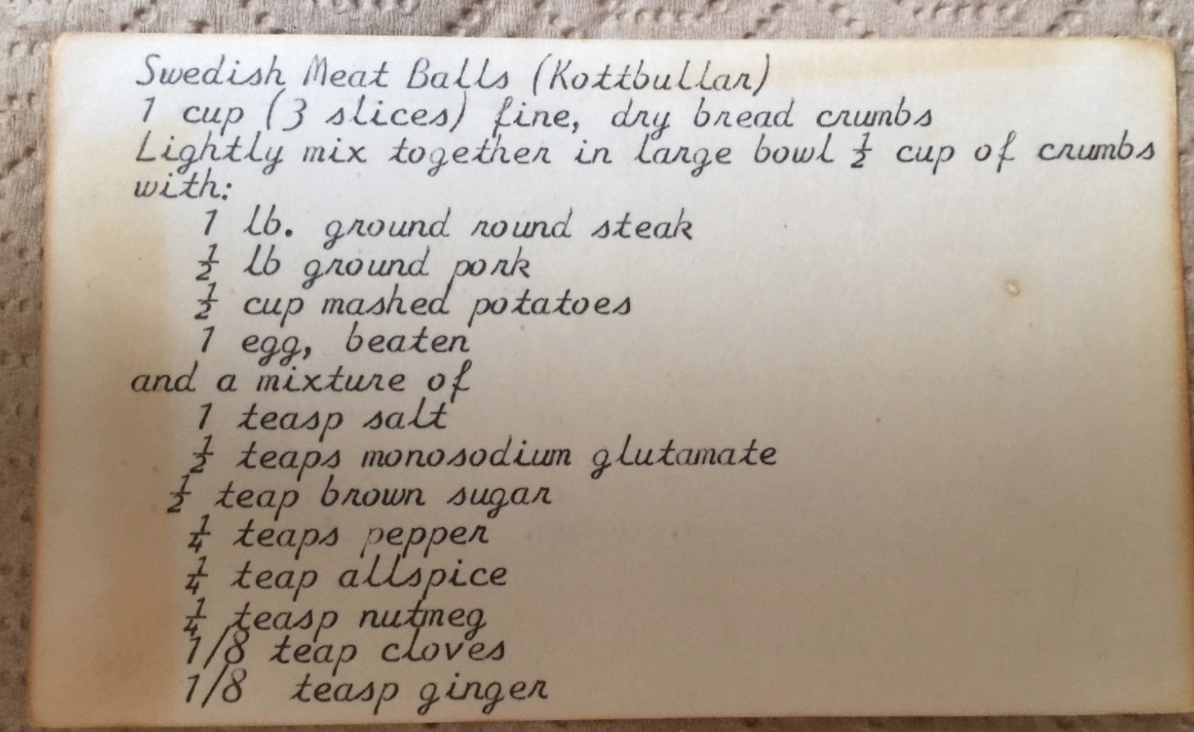 Swedish Meat Balls (Kottbullar)
1 cup (3 slices) fine, dry bread crumbs
Lightly mix together in large bowl ½ cup of crumbs
with:
1 lb. ground round steak
½ lb ground pork
½ cup mashed potatoes
1 egg, beaten
and a mixture of
1 teasp salt
½ teaps monosodium glutamate
½ teap brown sugar
¼ teaps pepper
¼ teap allspice
¼ teasp nutmeg
1/8 teap cloves
1/8 teasp ginger